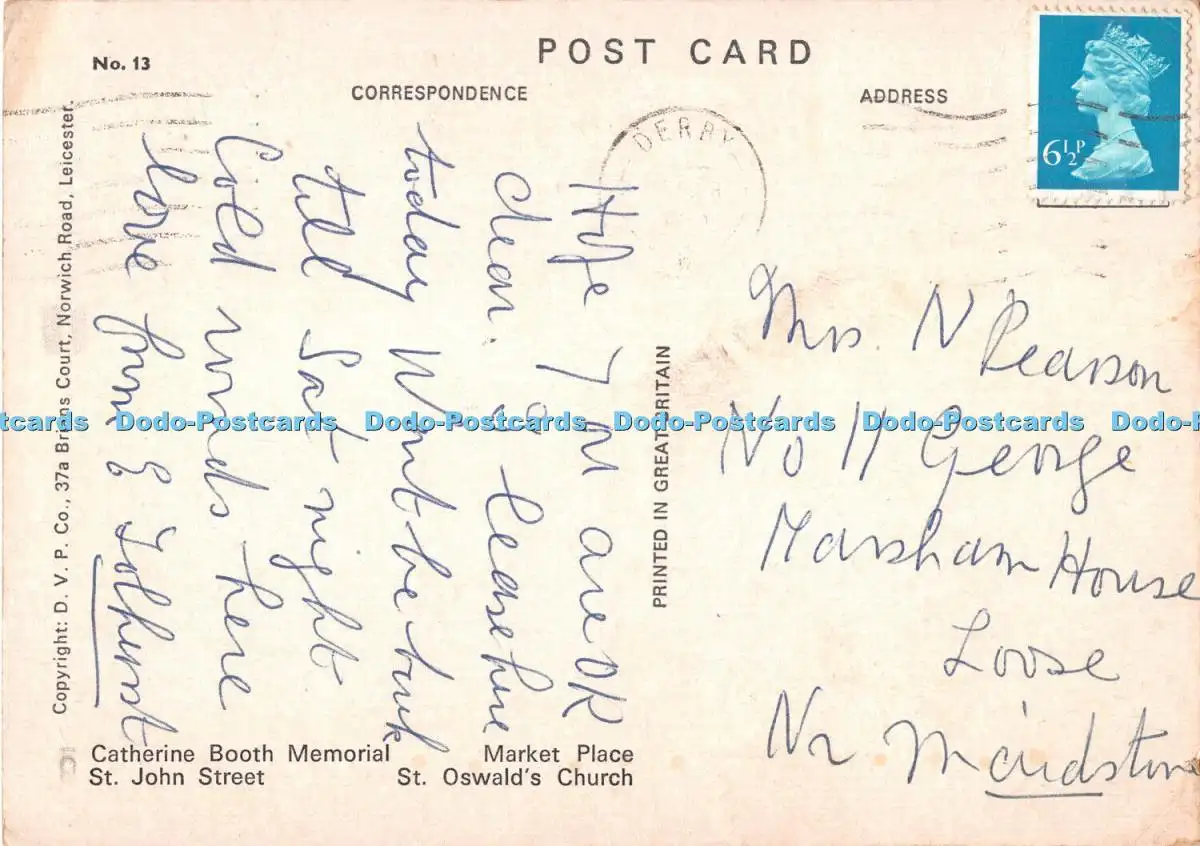 No. 13
POST CARD
CORRESPONDENCE
ADDRESS
DERBY
6½P
Hope
are OK
dear.
today Wont be back
till Sat night
Cold winds here
love from E Tolhurst
Mrs. N Pearson
No 11 George
Marsham House
Loose
Nr Maidstone
PRINTED IN GREAT BRITAIN
Copyright: D. V. P. Co., 37a Britons Court, Norwich Road, Leicester.
Catherine Booth Memorial Market Place
St. John Street St. Oswald's Church
Dodo-Postcards Dodo-Postcards Dodo-Postcards Dodo-Postcards Dodo-Postcards